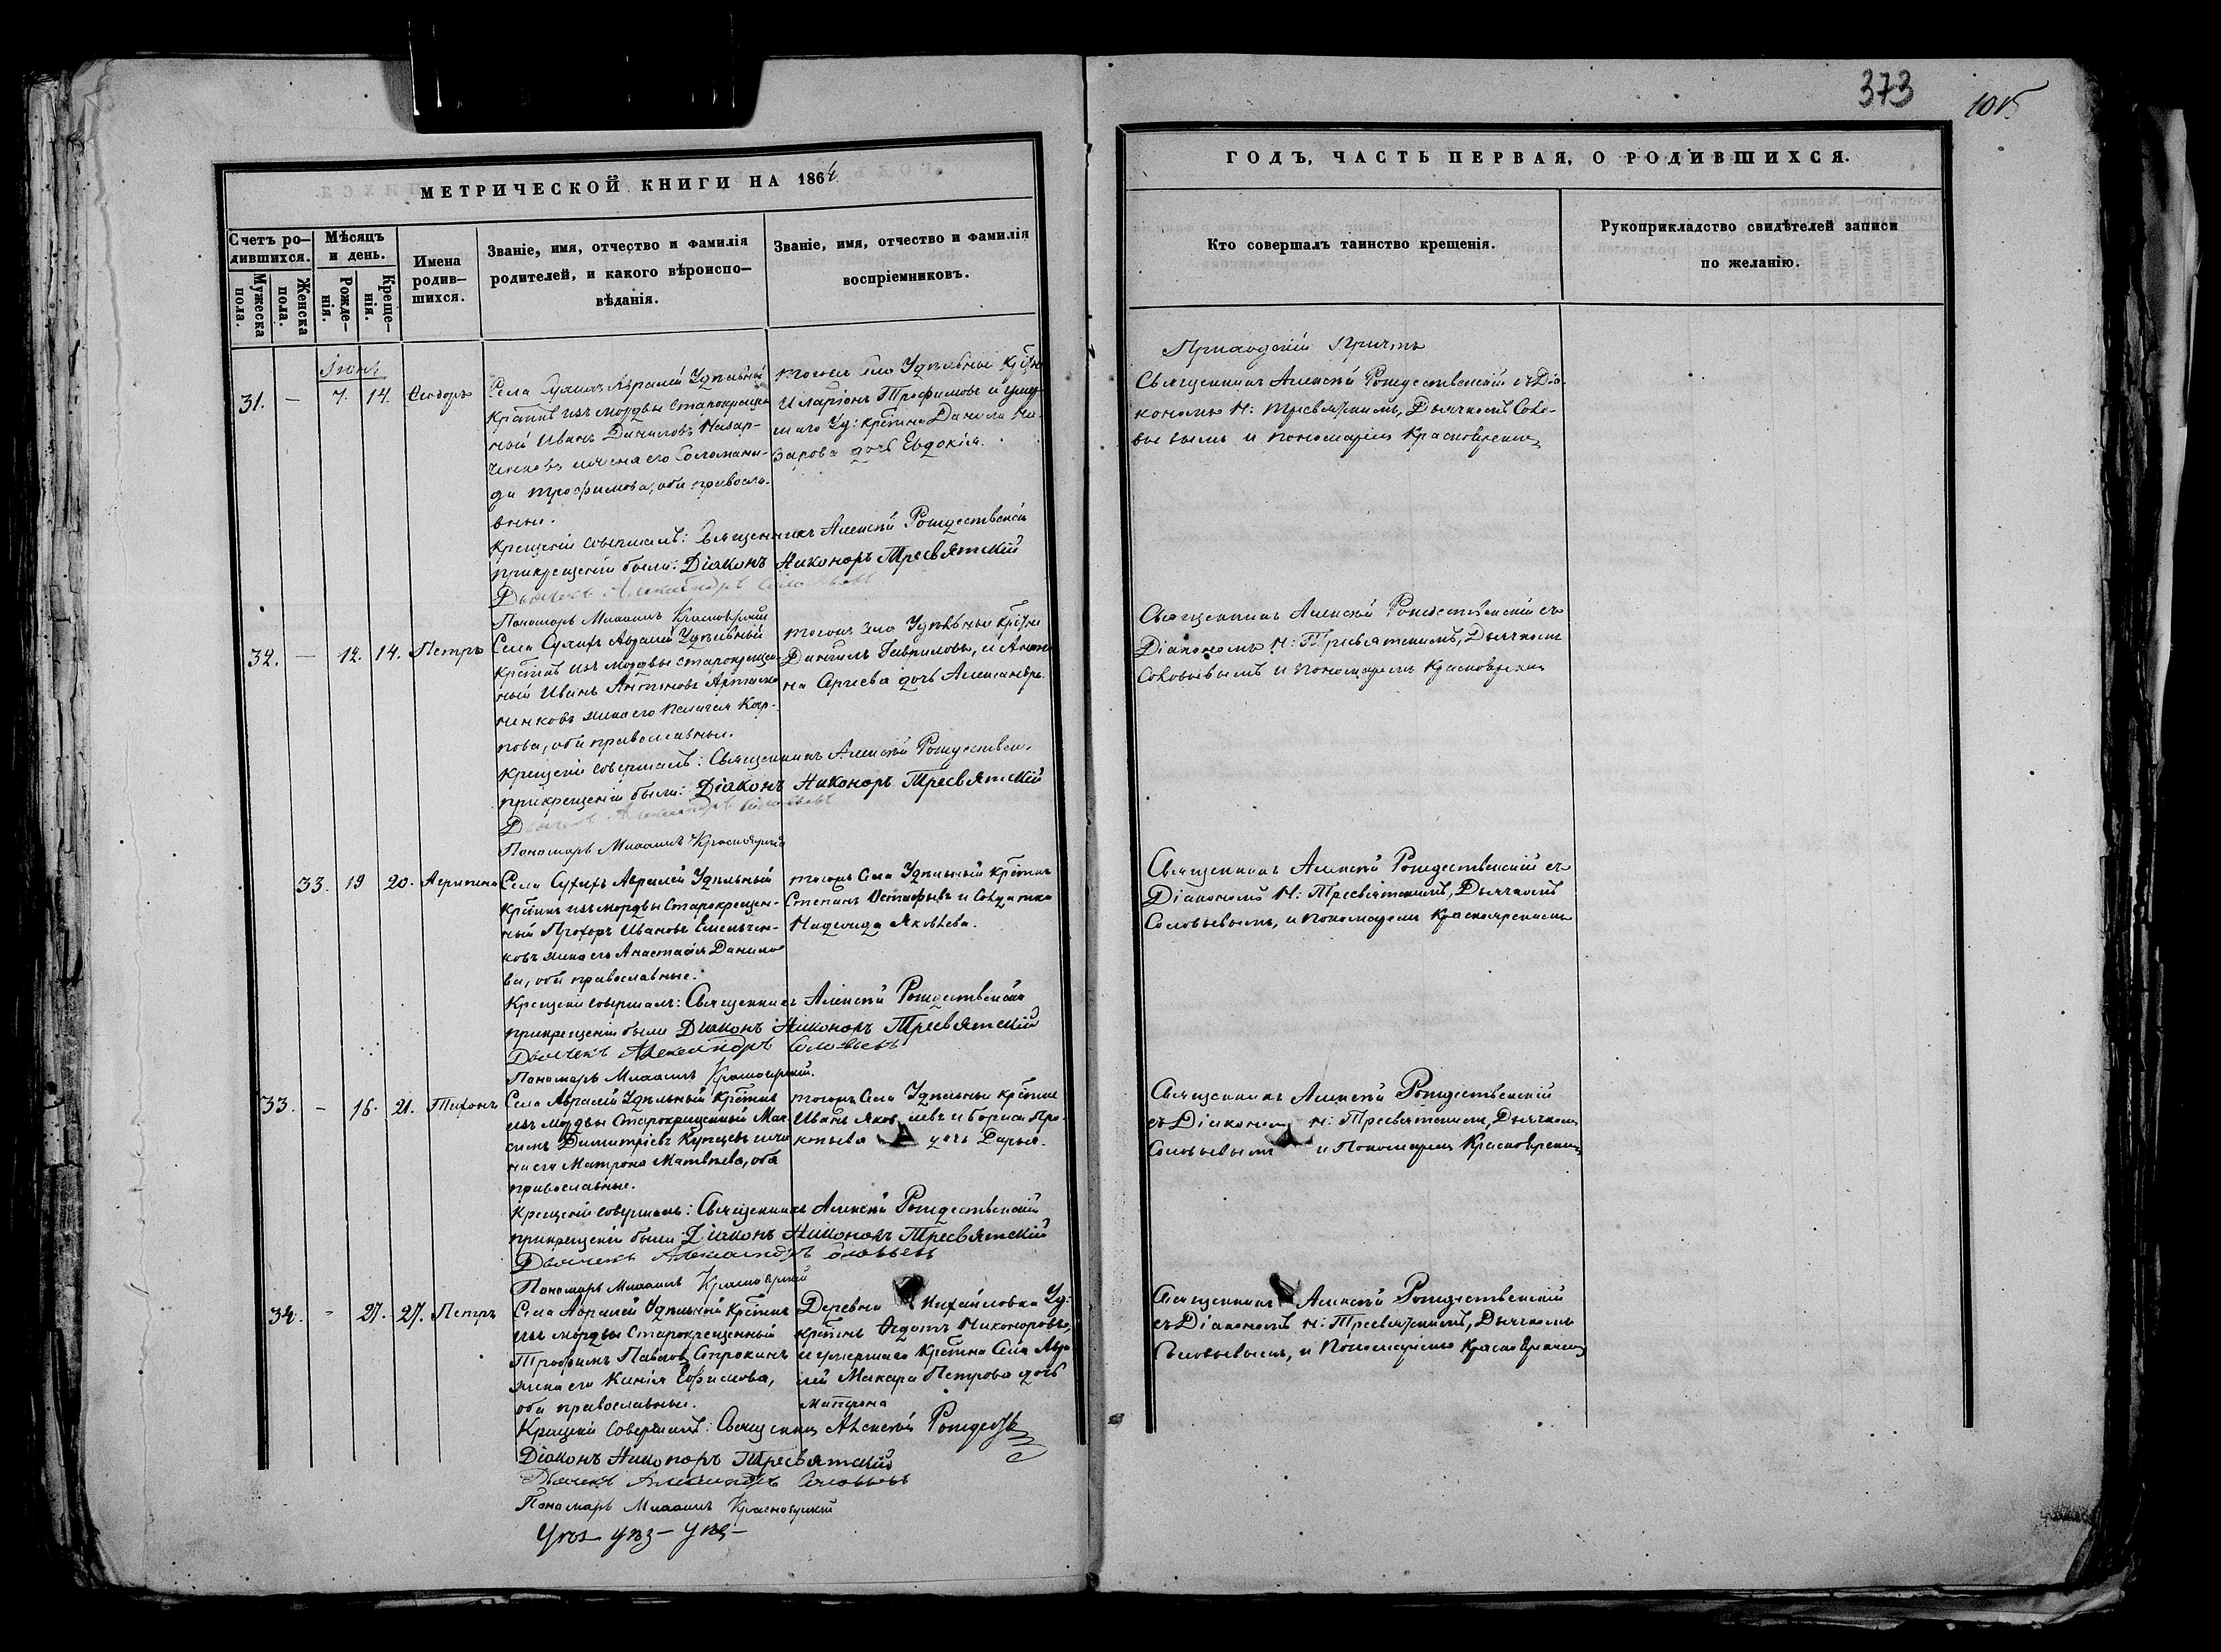 373
105
МЕТРИЧЕСКОЙ КНИГИ НА 1864
ГОДЪ, ЧАСТЬ ПЕРВАЯ, О РОДИВШИХСЯ.
Счетъ ро-
дившихся.
Мужеска
пола.
Женска
пола.
Мѣсяцъ
и день.
Рожде-
нія.
Креще-
нія.
Имена
родив-
шихся.
Званіе, имя, отчество и фамилія
родителей, и какого вѣроиспо-
вѣданія.
Званіе, имя, отчество и фамилія
воспріемниковъ.
Кто совершалъ таинство крещенія.
Рукоприкладство свидѣтелей записи
по желанію.
31. — 7. 14. Ѳеодоръ
Села Авралей Удѣльный
из мордвы старокреще
ный Иванъ Даниловъ Назар-
ченковъ жена его Соломани-
да Трофимова, оба правосла-
вные.
Крещеніе совершалъ: Священникъ Алексѣй Рождественскій
при крещеніи были: Діаконъ Никоноръ Тресвятскій
Дьячекъ Александръ Соловьевъ
Пономарь Михаилъ Красноярскій
тогоже села Удѣльные
Иларіонъ Трофимовъ и умер-
шаго Уд: крестина Данила На-
зарова дочь Евдокія.
Приходскій Причтъ
Священникъ Алексѣй Рождественскій съ Діа-
кономъ Н: Тресвятскимъ, Дьячкомъ Соло-
вьевымъ и пономаремъ Красноярским
32. — 12. 14. Петръ
Села Авралей Удѣльный
изъ мордвы старокреще
ный Иванъ Антоновъ
жена его Пелагея Кар-
пова, оба православные.
Крещеніе совершалъ: Священникъ Алексѣй Рождествен.
при крещеніи были: Діаконъ Никоноръ Тресвятскій
Дьячекъ Александръ Соловьевъ
Пономарь Михаилъ Красноярскій
тогожъ села Удѣльные
Даніилъ Гавриловъ, и
Сергеева дочь Александра.
Священникъ Алексѣй Рождественскій съ
Діакономъ Н: Тресвятскимъ, Дьячкомъ
Соловьевымъ и пономаремъ Красноярским
33. 19 20. Агрипина
Села Авралей Удѣльный
изъ мордвы Старокрещен-
ный Прохоръ Ивановъ Емельчен-
ковъ жена его Анастасія Данило
ва, оба православные.
Крещеніе совершалъ: Священникъ Алексѣй Рождественскій
при крещеніи были Діаконъ Никоноръ Тресвятскій
Дьячекъ Александръ Соловьевъ
Пономарь Михаилъ Красноярскій.
тогожъ села Удѣльный
Степанъ Остафьевъ и Солдатка
Надежда Яковлева.
Священникъ Алексѣй Рождественскій съ
Діакономъ Н: Тресвятскимъ, Дьячкомъ
Соловьевымъ, и пономаремъ Красноярскимъ
33. — 16. 21. Тихонъ
Села Авралей Удѣльный
изъ мордвы Старокрещенный Мак
симъ Димитріевъ Купцевъ жена
его Матрона Матвѣева, оба
православные.
Крещеніе совершалъ: Священникъ Алексѣй Рождественскій
при крещеніи были Діаконъ Никоноръ Тресвятскій
Дьячекъ Александръ Соловьевъ
Пономарь Михаилъ Красноярскій
тогожъ села Удѣльные
Иванъ Яковлевъ и Бориса Про-
кпьева дочь Дарья.
Священникъ Алексѣй Рождественскій
съ Діакономъ Н: Тресвятскимъ, Дьячкомъ
Соловьевымъ и Пономаремъ Красноярским
34. — 27. 27. Петръ
Села Авралей Удѣльный
изъ мордвы Старокрещенный
Трофимъ Павловъ Строкинъ
жена его Ксенія Ефимова,
оба православные.
Крещеніе Совершалъ: Священникъ Алексѣй Рождеств
Діаконъ Никоноръ Тресвятскій
Дьячекъ Александръ Соловьевъ
Пономарь Михаилъ Красноярскій
Деревни Михайловки Уд:
Ѳедотъ Никоноровъ,
и умершаго Села Авра
лей Макара Петрова дочь
Матрона
Священникъ Алексѣй Рождественскій
съ Діакономъ Н: Тресвятскимъ, Дьячкомъ
Соловьевымъ, и Пономаремъ Красноярским